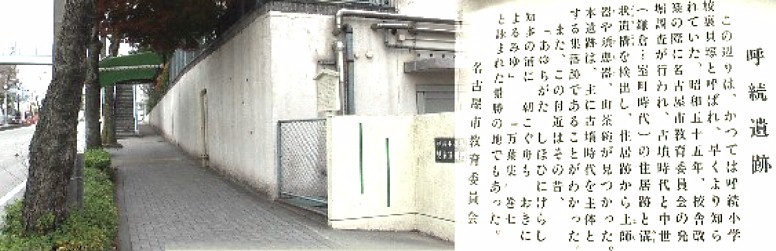 呼続遺跡
この辺りは、かつては呼続小学
校裏貝塚と呼ばれ、早くより知ら
れていた。昭和五十五年、校舎改
築の際に名古屋市教育委員会の発
掘調査が行われ、古墳時代と中世
（鎌倉・室町時代）の住居跡と溝
状遺構を検出し、住居跡から土師
器や須恵器、山茶碗が見つかった。
本遺跡は、主に古墳時代を主体と
する集落跡であることがわかった。
また、この付近はその昔、
「あゆちがた しほひにけらし
知多の浦に 朝こぐ舟も おきに
よるみゆ」 （万葉集 巻七）
と詠まれた景勝の地でもあった。
名古屋市教育委員会